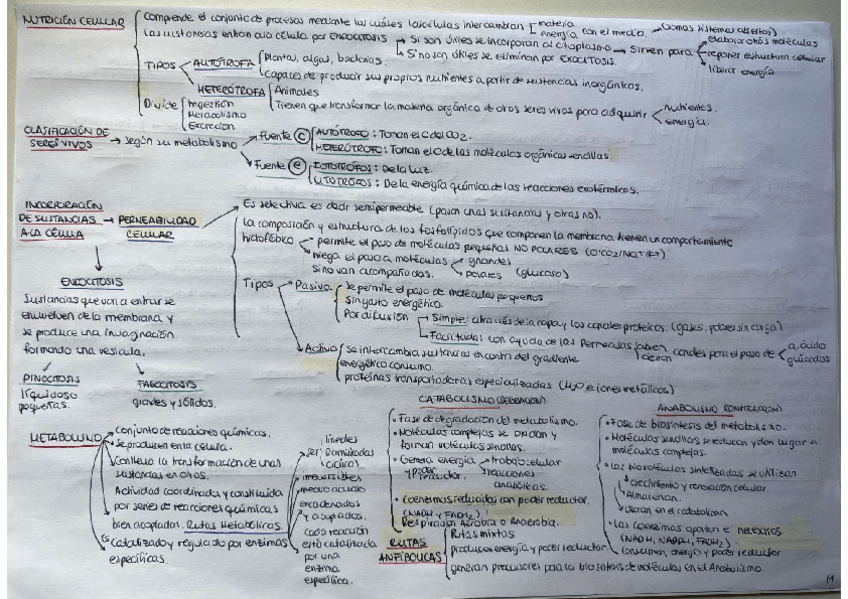 NUTRICIÓN CELULAR
Comprende el conjunto de procesos mediante los cuales las células intercambian materia energía con el medio. (somos sistemas abiertos)
Las sustancias entran a la célula por ENDOCITOSIS → Si son útiles se incorporan al citoplasma → Sirven para
elaborar otras moléculas
reponer estructura celular
liberar energía
Si no son útiles se eliminan por EXOCITOSIS.
TIPOS
AUTÓTROFA
Plantas, algas, bacterias.
Capaces de producir sus propios nutrientes a partir de sustancias inorgánicas.
HETERÓTROFA
Animales
Tienen que transformar la materia orgánica de otros seres vivos para adquirir
nutrientes.
energía.
Divide
Ingestión
Metabolismo
Excreción
CLASIFICACIÓN DE SERES VIVOS → según su metabolismo
Fuente C
AUTÓTROFO: Toman el C del CO2.
HETERÓTROFO: Toman el C de las moléculas orgánicas sencillas.
Fuente e
FOTOTRÓFOS: De la luz.
LITOTRÓFOS: De la energía química de las reacciones exotérmicas.
INCORPORACIÓN DE SUSTANCIAS A LA CÉLULA → PERMEABILIDAD CELULAR
Es selectiva es decir semipermeable (pasan unas sustancias y otras no).
La composición y estructura de los fosfolípidos que componen la membrana tienen un comportamiento
hidrófobico
permite el paso de moléculas pequeñas NO POLARES
niega el paso a moléculas
grandes
polares (glucosa)
Si no van acompañados.
Tipos
Pasiva
Se permite el paso de moléculas pequeños
Sin gasto energético.
Por difusión
Simple: a través de la
y los canales proteicos. (gases, polares sin carga)
Facilitada: con ayuda de las Permeasas
abren
cierran
canales para el paso de
a. ácido
glúcidos
Activo
Se intercambia sustancias en contra del gradiente
energético consumo.
proteínas transportadoras especializadas (H2O e iones metálicos)
ENDOCITOSIS
Sustancias que van a entrar se
envuelven de la membrana y
se produce una invaginación
formando una vesícula.
PINOCITOSIS
líquidos o
pequeñas.
FAGOCITOSIS
grandes y sólidos.
METABOLISMO
conjunto de reacciones químicas.
Se producen en la célula.
Conlleva la transformación de unas
sustancias en otras.
Actividad coordinada y constituida
por series de reacciones químicas
bien acopladas. Rutas Metabólicas.
Es catalizado y regulado por enzimas
específicas.
Ser
lineales
Ramificadas
cíclicas
irreversibles
encadenados
y acopladas.
cada reacción
está catalizada
por una
enzima
específica.
CATABOLISMO
• Fase de degradación del metabolismo.
• Moléculas complejas se oxidan y
forman moléculas sencillas.
• Genera energía
y poder reductor.
trabajo celular
reacciones
anabólicas.
• Coenzimas reducidas con poder reductor
(NADH y FADH2)
Respiración Aerobia o Anaerobia.
ANABOLISMO
• Fase de biosíntesis del metabolismo.
• Moléculas sencillas se reducen y dan lugar a
moléculas complejas.
• Las biomoléculas sintetizadas se utilizan
crecimiento y renovación celular.
Almacenan.
Usaran en el catabolismo
• Las coenzimas aportan e- necesarios.
(NADH, NADPH, FADH2)
Consumen energía y poder reductor
RUTAS ANFIBÓLICAS
Rutas mixtas
producen energía y poder reductor
generan precursores para la biosíntesis de moléculas en el Anabolismo.